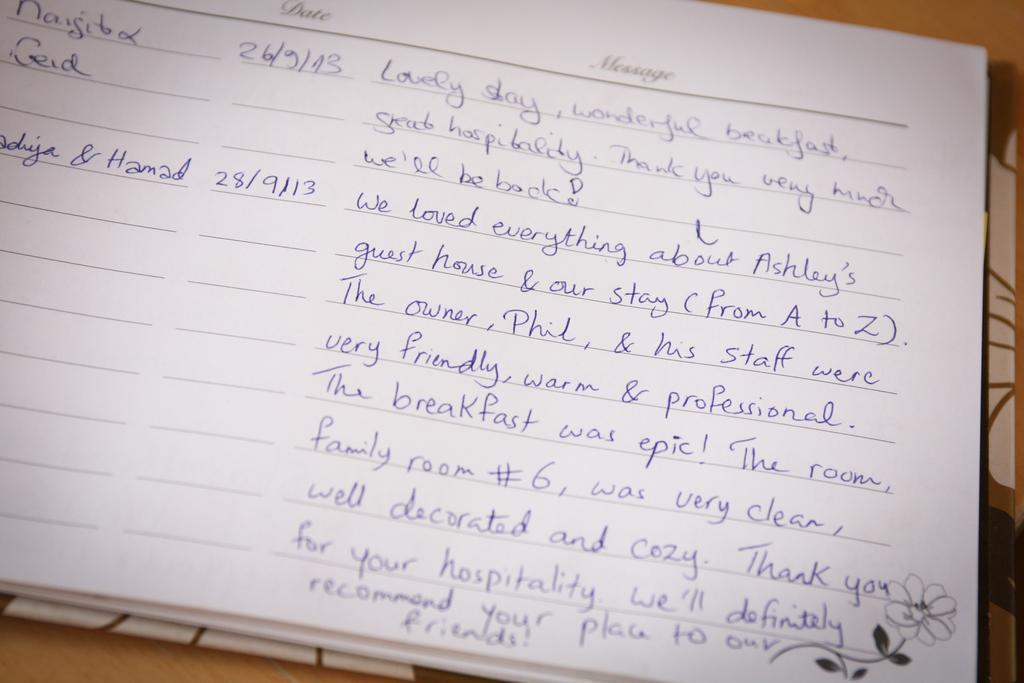 Date Message
26/9/13 Lovely stay, wonderful breakfast,
Gerd great hospitality. Thank you very much
we'll be back!
& Hamad 28/9/13 We loved everything about Ashley's
guest house & our stay (from A to Z).
The owner, Phil, & his staff were
very friendly, warm & professional.
The breakfast was epic! The room,
family room #6, was very clean,
well decorated and cozy. Thank you
for your hospitality. We'll definitely
recommend your place to our
friends!